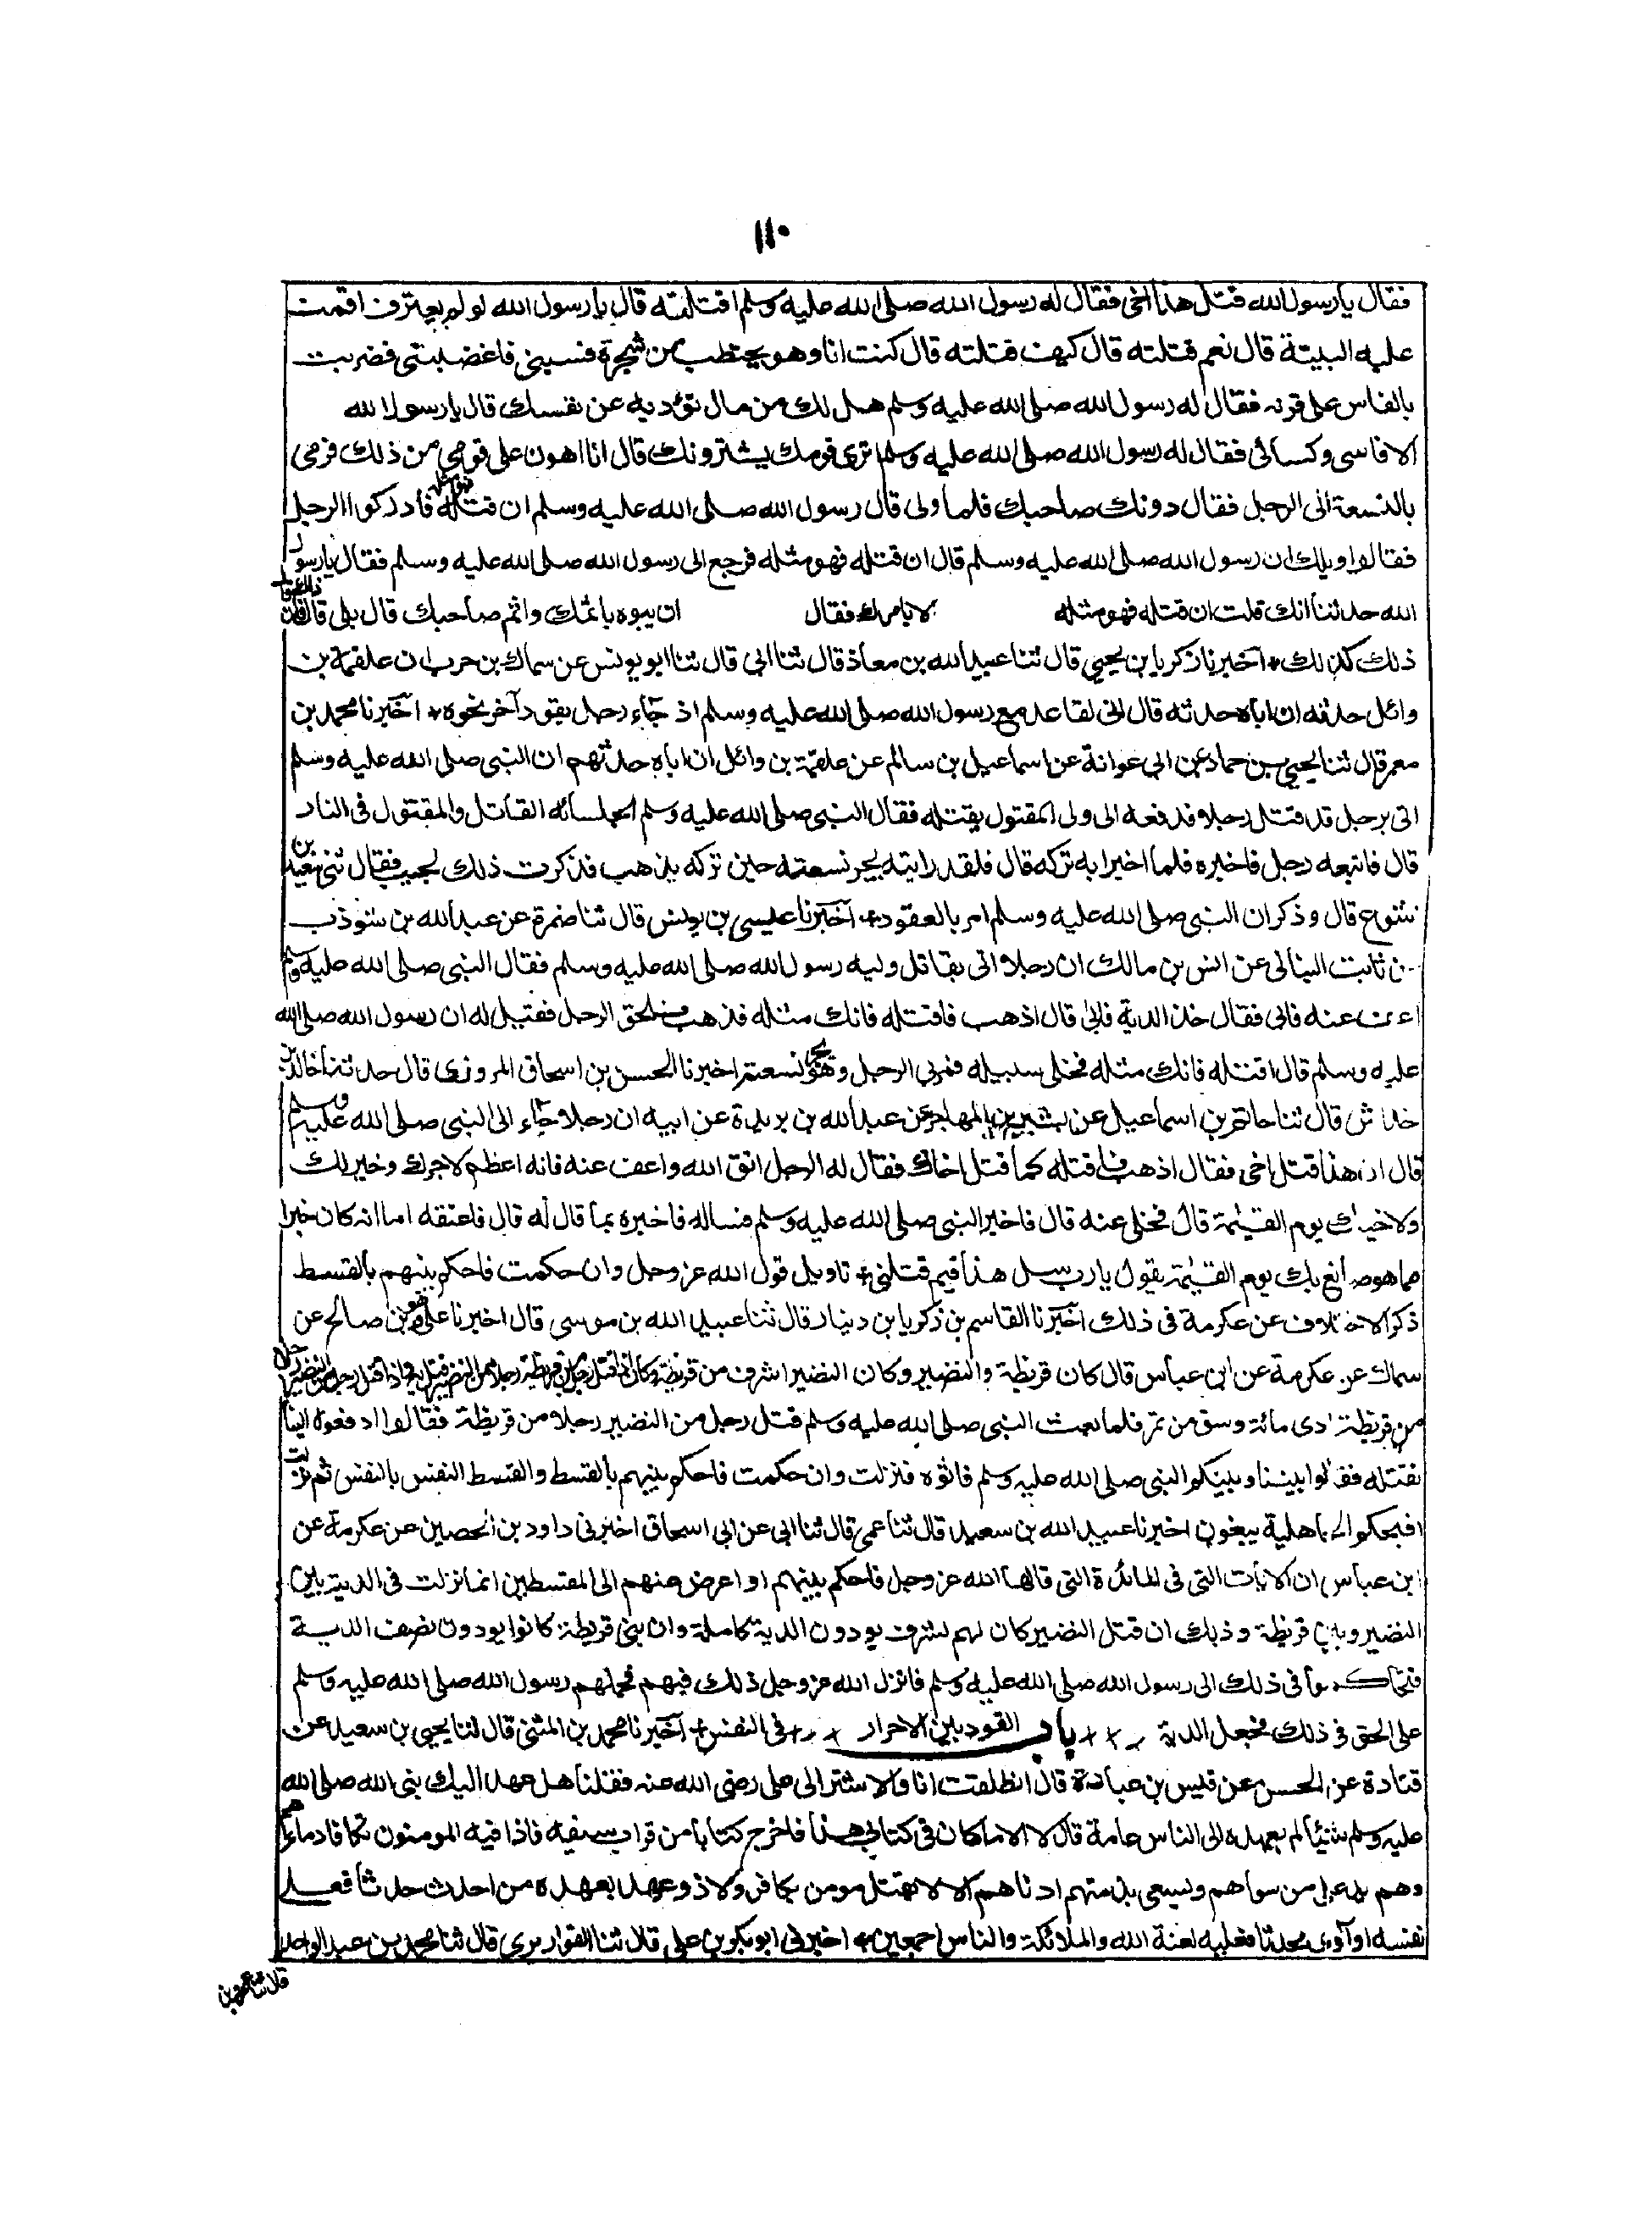 ١١٠
فقال يا رسول الله قتل هذا اخى فقال له رسول الله صلى الله عليه وسلم اقتلته قال يا رسول الله لو لم يعترف اقمت
عليه البينة قال نعم قتلته قال كيف قتلته قال كنت انا وهو يحتطب من شجرة فسبنى فاغضبنى فضربت
بالفاس على قرنه فقال له رسول الله صلى الله عليه وسلم هل لك من مال تؤديه عن نفسك قال يا رسول الله
الا فاسى وكسائى فقال له رسول الله صلى الله عليه وسلم ترى قومك يشترونك قال انا اهون على قومى من ذلك فرمى
بالنسعة الى الرجل فقال دونك صاحبك فلما ولى قال رسول الله صلى الله عليه وسلم ان قتله فهو مثله فادركوا الرجل
فقالوا ويلك ان رسول الله صلى الله عليه وسلم قال ان قتله فهو مثله فرجع الى رسول الله صلى الله عليه وسلم فقال يا رسول
الله حدثنا انك قلت ان قتله فهو مثله الا بامرك فقال ان يبوء باثمك واثم صاحبك قال بلى قال فان
ذلك كذلك * اخبرنا زكريا بن يحيى قال ثنا عبيد الله بن معاذ قال ثنا ابى قال ثنا ابو يونس عن سماك بن حرب ان علقمة بن
وائل حدثه ان اباه حدثه قال انى لقاعد مع رسول الله صلى الله عليه وسلم اذ جاء رجل يقود آخر نحوه * اخبرنا محمد بن
معمر قال ثنا يحيى بن حماد عن ابى عوانة عن اسماعيل بن سالم عن علقمة بن وائل ان اباه حدثهم ان النبى صلى الله عليه وسلم
اتى برجل قد قتل رجلا فدفعه الى ولى المقتول يقتله فقال النبى صلى الله عليه وسلم لجلسائه القاتل والمقتول فى النار
قال فاتبعه رجل فاخبره فلما اخبر ابه تركه قال فلقد رايته يجر نسعته حين تركه يذهب فذكرت ذلك لحبيب فقال ثنى سعيد بن
اشوع قال وذكر ان النبى صلى الله عليه وسلم امر بالعفو * اخبرنا عيسى بن يونس قال ثنا ضمرة عن عبد الله بن شوذب
عن ثابت البنانى عن انس بن مالك ان رجلا اتى بقاتل وليه رسول الله صلى الله عليه وسلم فقال النبى صلى الله عليه وسلم
اعف عنه فابى فقال خذ الدية فابى قال اذهب فاقتله فانك مثله فذهب فلحق الرجل فقيل له ان رسول الله صلى الله
عليه وسلم قال اقتله فانك مثله فخلى سبيله فمر بى الرجل وهو يجر نسعته اخبرنا الحسن بن اسحاق المروزى قال حدثنا خالد بن
خداش قال ثنا حاتم بن اسماعيل عن بشير بن المهاجر عن عبد الله بن بريدة عن ابيه ان رجلا جاء الى النبى صلى الله عليه وسلم
قال ان هذا قتل اخى فقال اذهب فاقتله كما قتل اخاك فقال له الرجل اتق الله واعف عنه فانه اعظم لاجرك وخير لك
ولاخيك يوم القيمة قال فخلى عنه قال فاخبر النبى صلى الله عليه وسلم فساله فاخبره بما قال له قال فاعنفه اما انه كان خيرا
مما هو صانع بك يوم القيمة يقول يا رب سل هذا فيم قتلنى * تاويل قول الله عز وجل وان حكمت فاحكم بينهم بالقسط
ذكر الاختلاف عن عكرمة فى ذلك اخبرنا القاسم بن زكريا بن دينار قال ثنا عبيد الله بن موسى قال اخبرنا على وهو بن صالح عن
سماك عن عكرمة عن ابن عباس قال كان قريظة والنضير وكان النضير اشرف من قريظة وكان اذا قتل رجل من قريظة رجلا من النضير قتل به واذا قتل رجل من النضير رجلا
من قريظة ادى مائة وسق من تمر فلما بعث النبى صلى الله عليه وسلم قتل رجل من النضير رجلا من قريظة فقالوا ادفعوه الينا
نقتله فقالوا بيننا وبينكم النبى صلى الله عليه وسلم فاتوه فنزلت وان حكمت فاحكم بينهم بالقسط والقسط النفس بالنفس ثم نزلت
افحكم الجاهلية يبغون اخبرنا عبيد الله بن سعيد قال ثنا عمى قال ثنا ابى عن ابى اسحاق اخبرنى داود بن الحصين عن عكرمة عن
ابن عباس ان الايات التى فى المائدة التى قالها الله عز وجل فاحكم بينهم او اعرض عنهم الى المقسطين انما نزلت فى الدية بين
النضير وبين قريظة وذلك ان قتل النضير كان لهم شرف يودون الدية كاملة وان بنى قريظة كانوا يودون نصف الدية
فتحاكموا فى ذلك الى رسول الله صلى الله عليه وسلم فانزل الله عز وجل ذلك فيهم فحملهم رسول الله صلى الله عليه وسلم
على الحق فى ذلك فجعل الدية باب القود بين الاحرار فى النفس * اخبرنا محمد بن المثنى قال ثنا يحيى بن سعيد عن
قتادة عن الحسن عن قيس بن عبادة قال انطلقت انا والاشتر الى على رضى الله عنه فقلنا هل عهد اليك نبى الله صلى الله
عليه وسلم شيئا لم يعهده الى الناس عامة قال لا الا ما كان فى كتابى هذا فاخرج كتابا من قراب سيفه فاذا فيه المومنون تكافا دماءهم
وهم يد على من سواهم ويسعى بذمتهم ادناهم الا لا يقتل مومن بكافر ولا ذو عهد بعهده من احدث حدثا فعلى
نفسه او آوى محدثا فعليه لعنة الله والملائكة والناس اجمعين * اخبرنى ابو بكر بن على قال ثنا القواريرى قال ثنا محمد بن عبد الواحد
قال ثنا عمرو بن